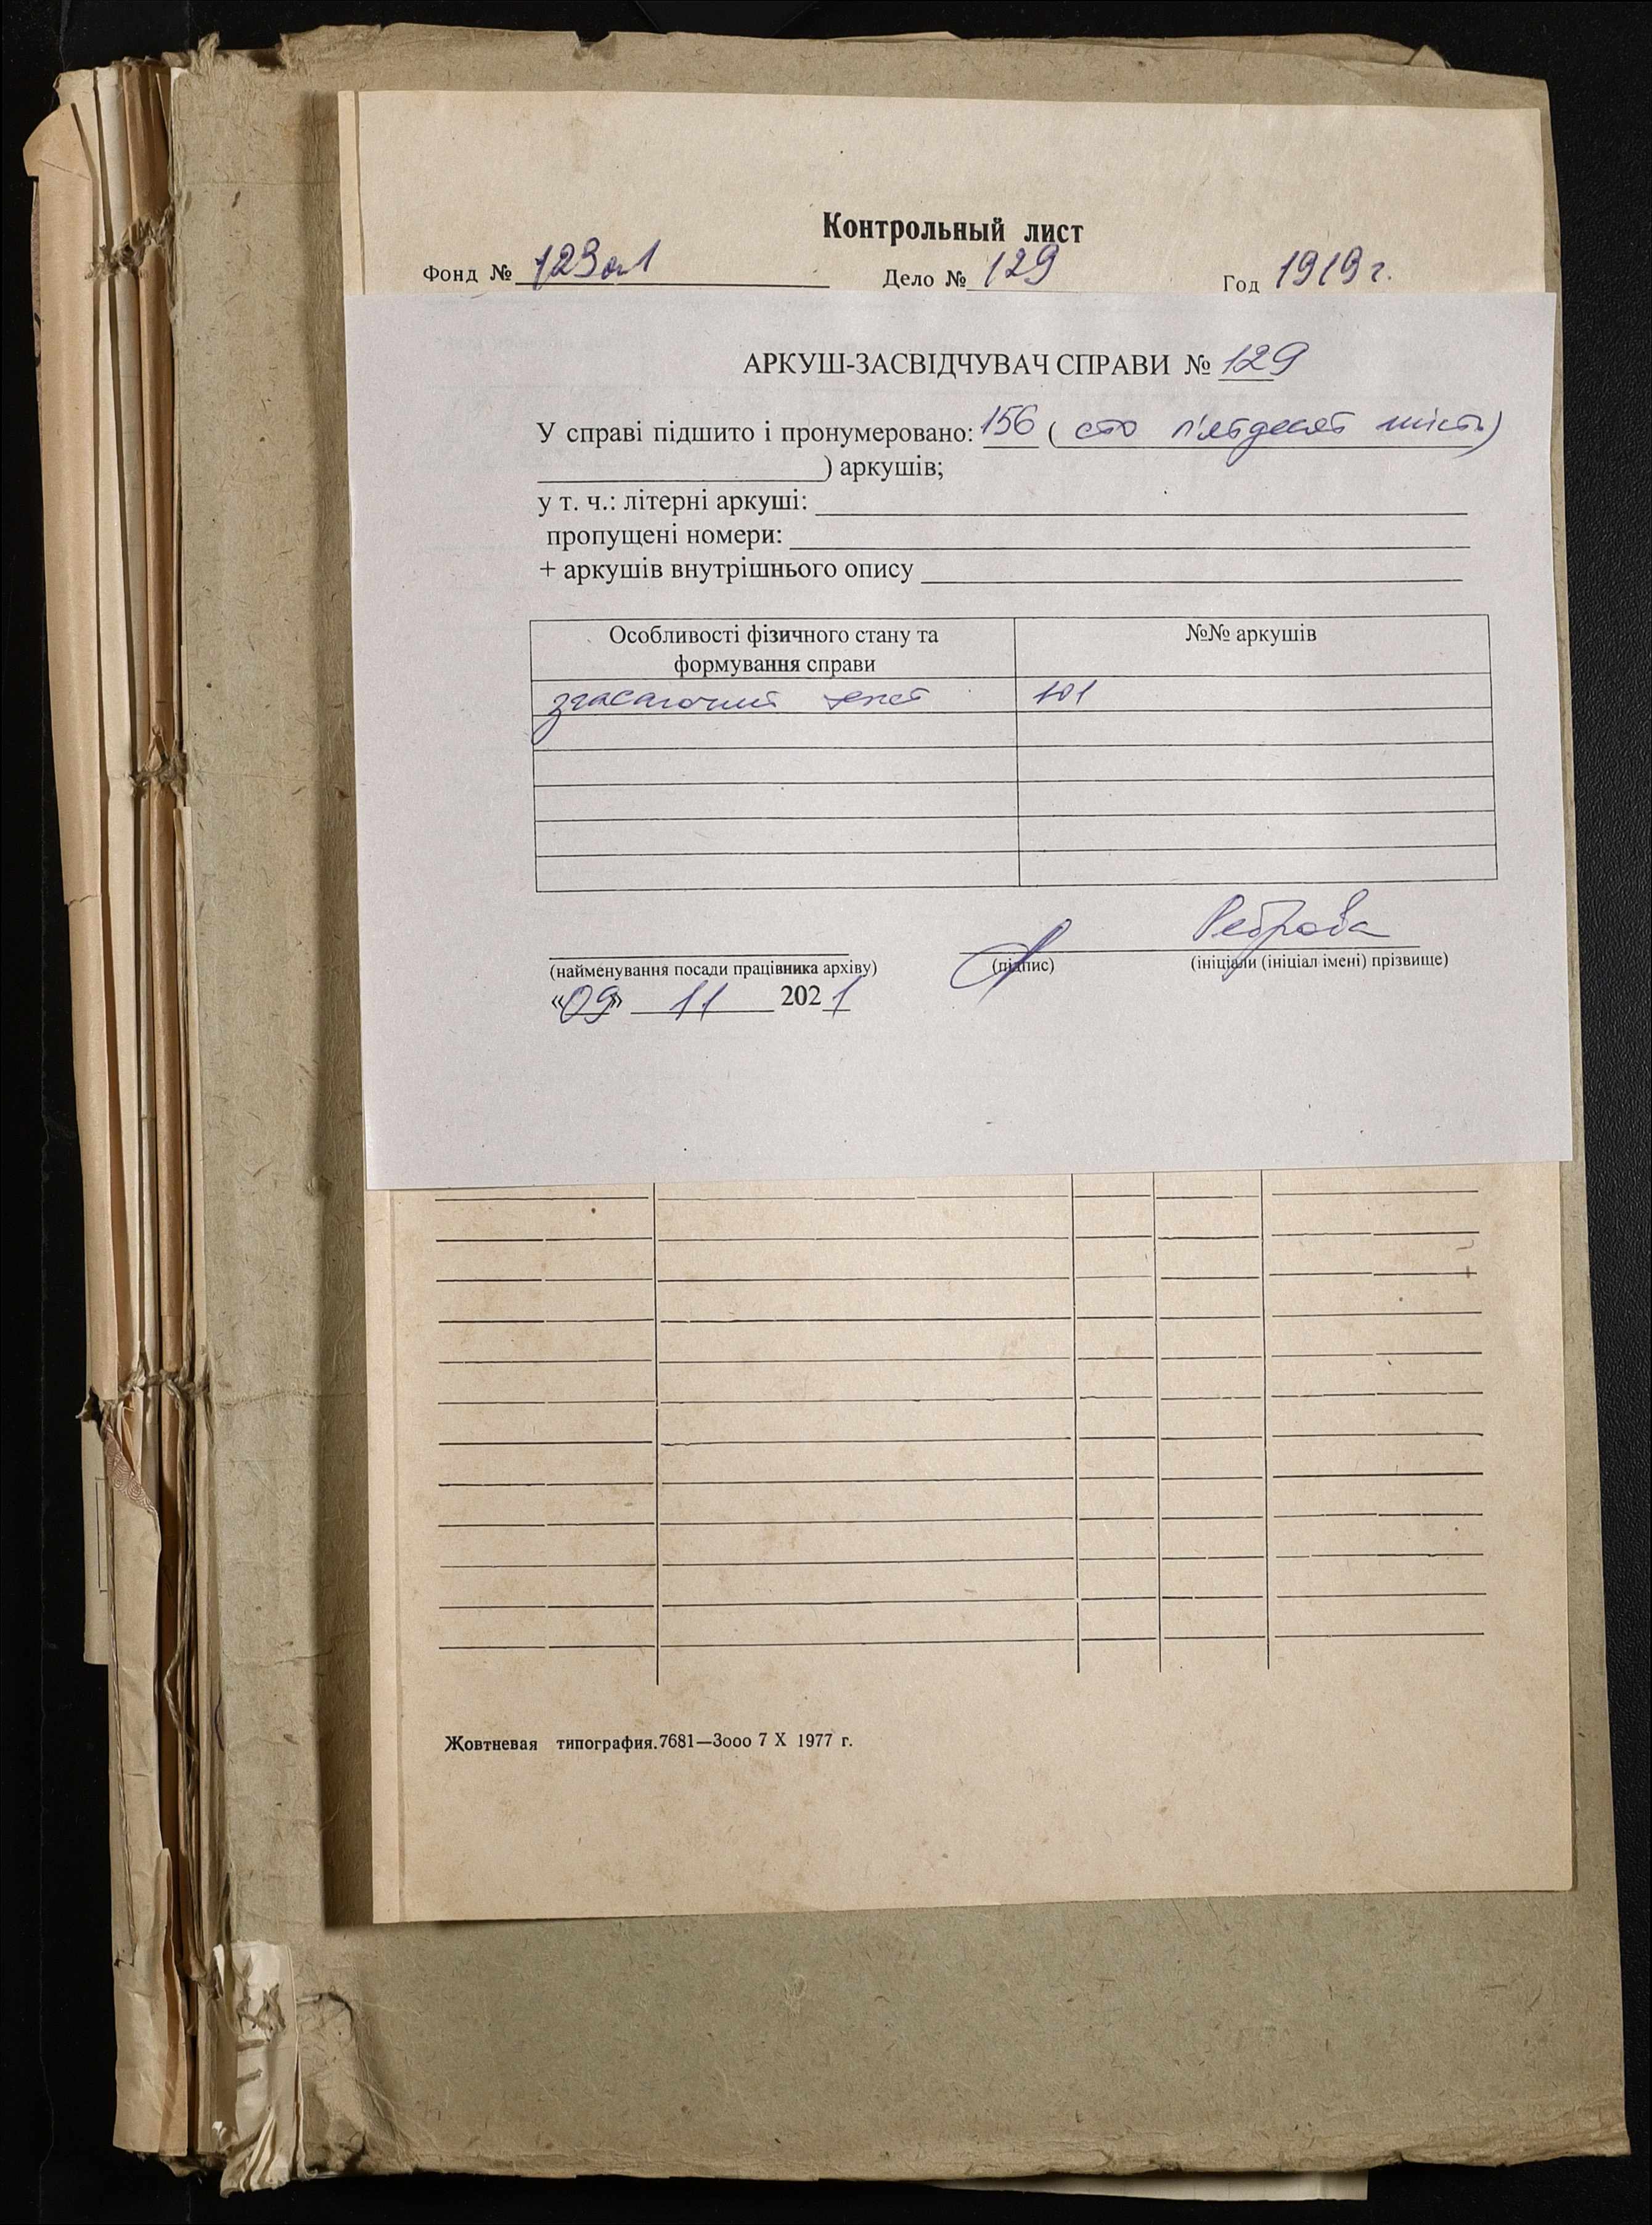 Контрольный лист
Фонд № 123 оп1 Дело № 129 Год 1919 г.
АРКУШ-ЗАСВІДЧУВАЧ СПРАВИ № 129
У справі підшито і пронумеровано: 156 ( сто п'ятдесят шість)
) аркушів;
у т. ч.: літерні аркуші:
пропущені номери:
+ аркушів внутрішнього опису
Особливості фізичного стану та №№ аркушів
формування справи
згасаючий текст 101
Реброва
(найменування посади працівника архіву) (підпис) (ініціали (ініціал імені) прізвище)
«09» 11 2021
Жовтневая типография.7681—3ооо 7 X 1977 г.